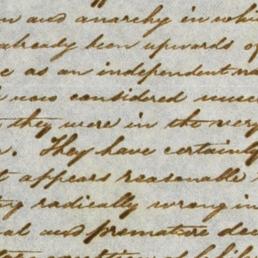 and anarchy in whi
already been upwards of
as an independent na
now considered unce
they were in the very
They have certainly
appears reasonable
radically wrong in
and premature dec